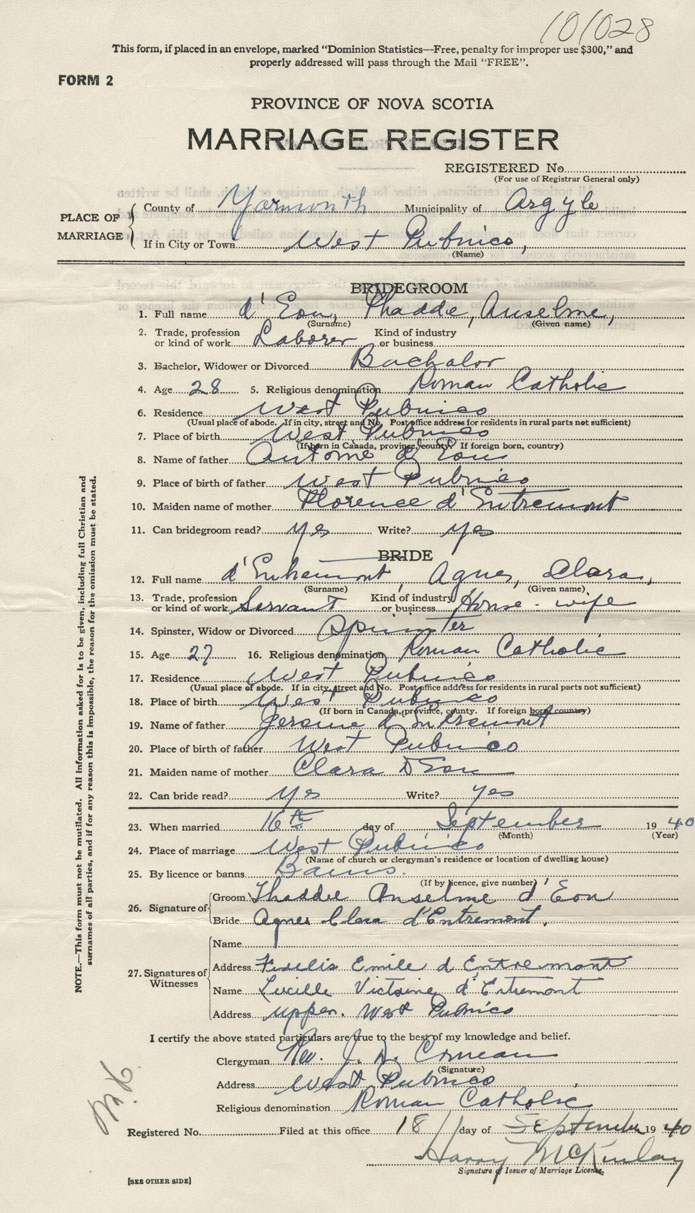 101028
This form, if placed in an envelope, marked "Dominion Statistics—Free, penalty for improper use $300," and
properly addressed will pass through the Mail "FREE".
FORM 2
PROVINCE OF NOVA SCOTIA
MARRIAGE REGISTER
REGISTERED No.
(For use of Registrar General only)
PLACE OF MARRIAGE
County of Yarmouth Municipality of Argyle
If in City or Town West Pubnico,
(Name)
BRIDEGROOM
1. Full name d'Eon, Thadde, Anselme,
(Surname) (Given name)
2. Trade, profession or kind of work Laborer Kind of industry or business
3. Bachelor, Widower or Divorced Bachalor
4. Age 28 5. Religious denomination Roman Catholic
6. Residence West Pubnico
(Usual place of abode. If in city, street and No. Post office address for residents in rural parts not sufficient)
7. Place of birth West Pubnico
(If born in Canada, province, county. If foreign born, country)
8. Name of father Antome d'Eon
9. Place of birth of father West Pubnico
10. Maiden name of mother Florence d'Entremont
11. Can bridegroom read? yes Write? yes
BRIDE
12. Full name d'Entremont, Agnes, Clara,
(Surname) (Given name)
13. Trade, profession or kind of work Servant Kind of industry or business House-wife
14. Spinster, Widow or Divorced Spinster
15. Age 27 16. Religious denomination Roman Catholic
17. Residence West Pubnico
(Usual place of abode. If in city, street and No. Post office address for residents in rural parts not sufficient)
18. Place of birth West Pubnico
(If born in Canada, province, county. If foreign born, country)
19. Name of father Jerome d'Entremont
20. Place of birth of father West Pubnico
21. Maiden name of mother Clara D'Eon
22. Can bride read? yes Write? yes
23. When married 16th day of September 1940
(Month) (Year)
24. Place of marriage West Pubnico
(Name of church or clergyman's residence or location of dwelling house)
25. By licence or banns Banns.
(If by licence, give number)
26. Signature of
Groom Thaddée Anselme d'Eon
Bride Agnes Clara d'Entremont.
27. Signatures of Witnesses
Name
Address Emile d'Entremont
Name Lucille Victorine d'Entremont
Address Upper. West Pubnico
I certify the above stated particulars are true to the best of my knowledge and belief.
Clergyman Rev. J. A. Comeau
(Signature)
Address West Pubnico
Religious denomination Roman Catholic
Registered No. Filed at this office 18 day of September 1940
Harry McKinlay
Signature of Issuer of Marriage License.
[SEE OTHER SIDE]
NOTE.—This form must not be mutilated. All information asked for is to be given, including full Christian and
surnames of all parties, and if for any reason this is impossible, the reason for the omission must be stated.